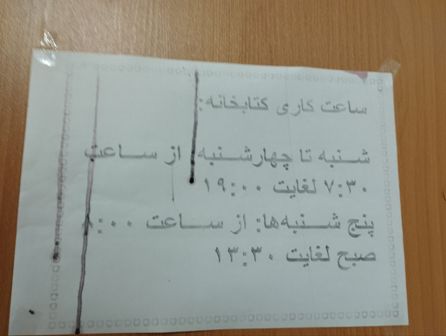 ساعت کاری کتابخانه:
شنبه تا چهارشنبه از ساعت
۷:۳۰ لغایت ۱۹:۰۰
پنج شنبه‌ها: از ساعت ۸:۰۰
صبح لغایت ۱۳:۳۰